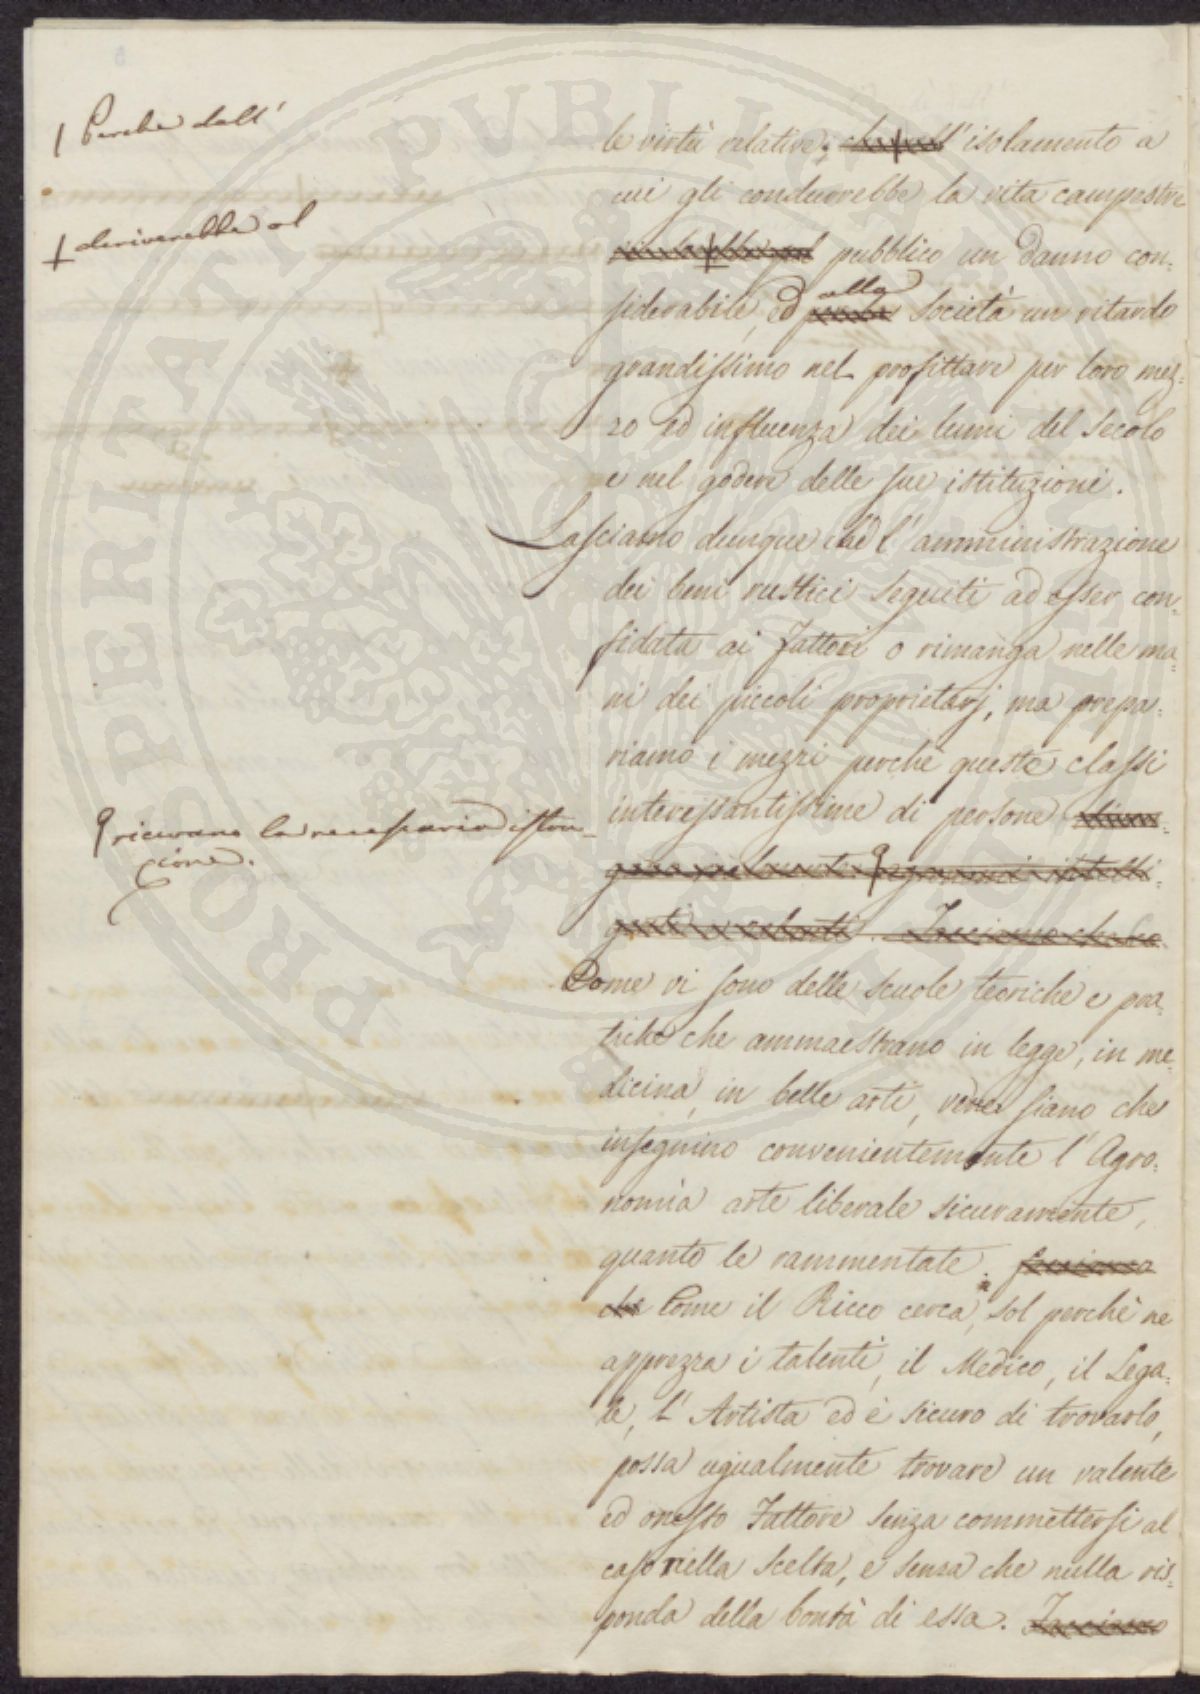 / Perche dall'
+ deriverebbe al
le virtù relative; che nell' isolamento a
cui gli condurrebbe la vita campestre
pubblico un danno con:
siderabile, ed alla Società un ritardo
grandissimo nel profittare per loro mez:
zo ed influenza dei lumi del secolo
e nel godere delle sue istituzioni.
Lasciamo dunque che l' amministrazione
dei beni rustici seguiti ad esser con:
fidata ai Fattori o rimanga nelle ma:
ni dei piccoli proprietarj, ma prepa:
riamo i mezzi perchè queste classi
interessantissime di persone
ricevano la necessaria istru:
zione.
genti
. Facciamo che se
Come vi sono delle scuole teoriche e pra:
tiche che ammaestrano in legge, in me:
dicina, in belle arti, vene siano che
insegnino convenientemente l' Agro:
nomia arte liberale sicuramente,
quanto le rammentate. facciamo
che Come il Ricco cerca, sol perchè ne
apprezza i talenti, il Medico, il Lega:
le, l' Artista ed è sicuro di trovarlo,
possa ugualmente trovare un valente
ed onesto Fattore senza commettersi al
caso nella scelta, e senza che nulla ris:
ponda della bontà di essa. Facciamo
PROSPERITATI PUBLICAE